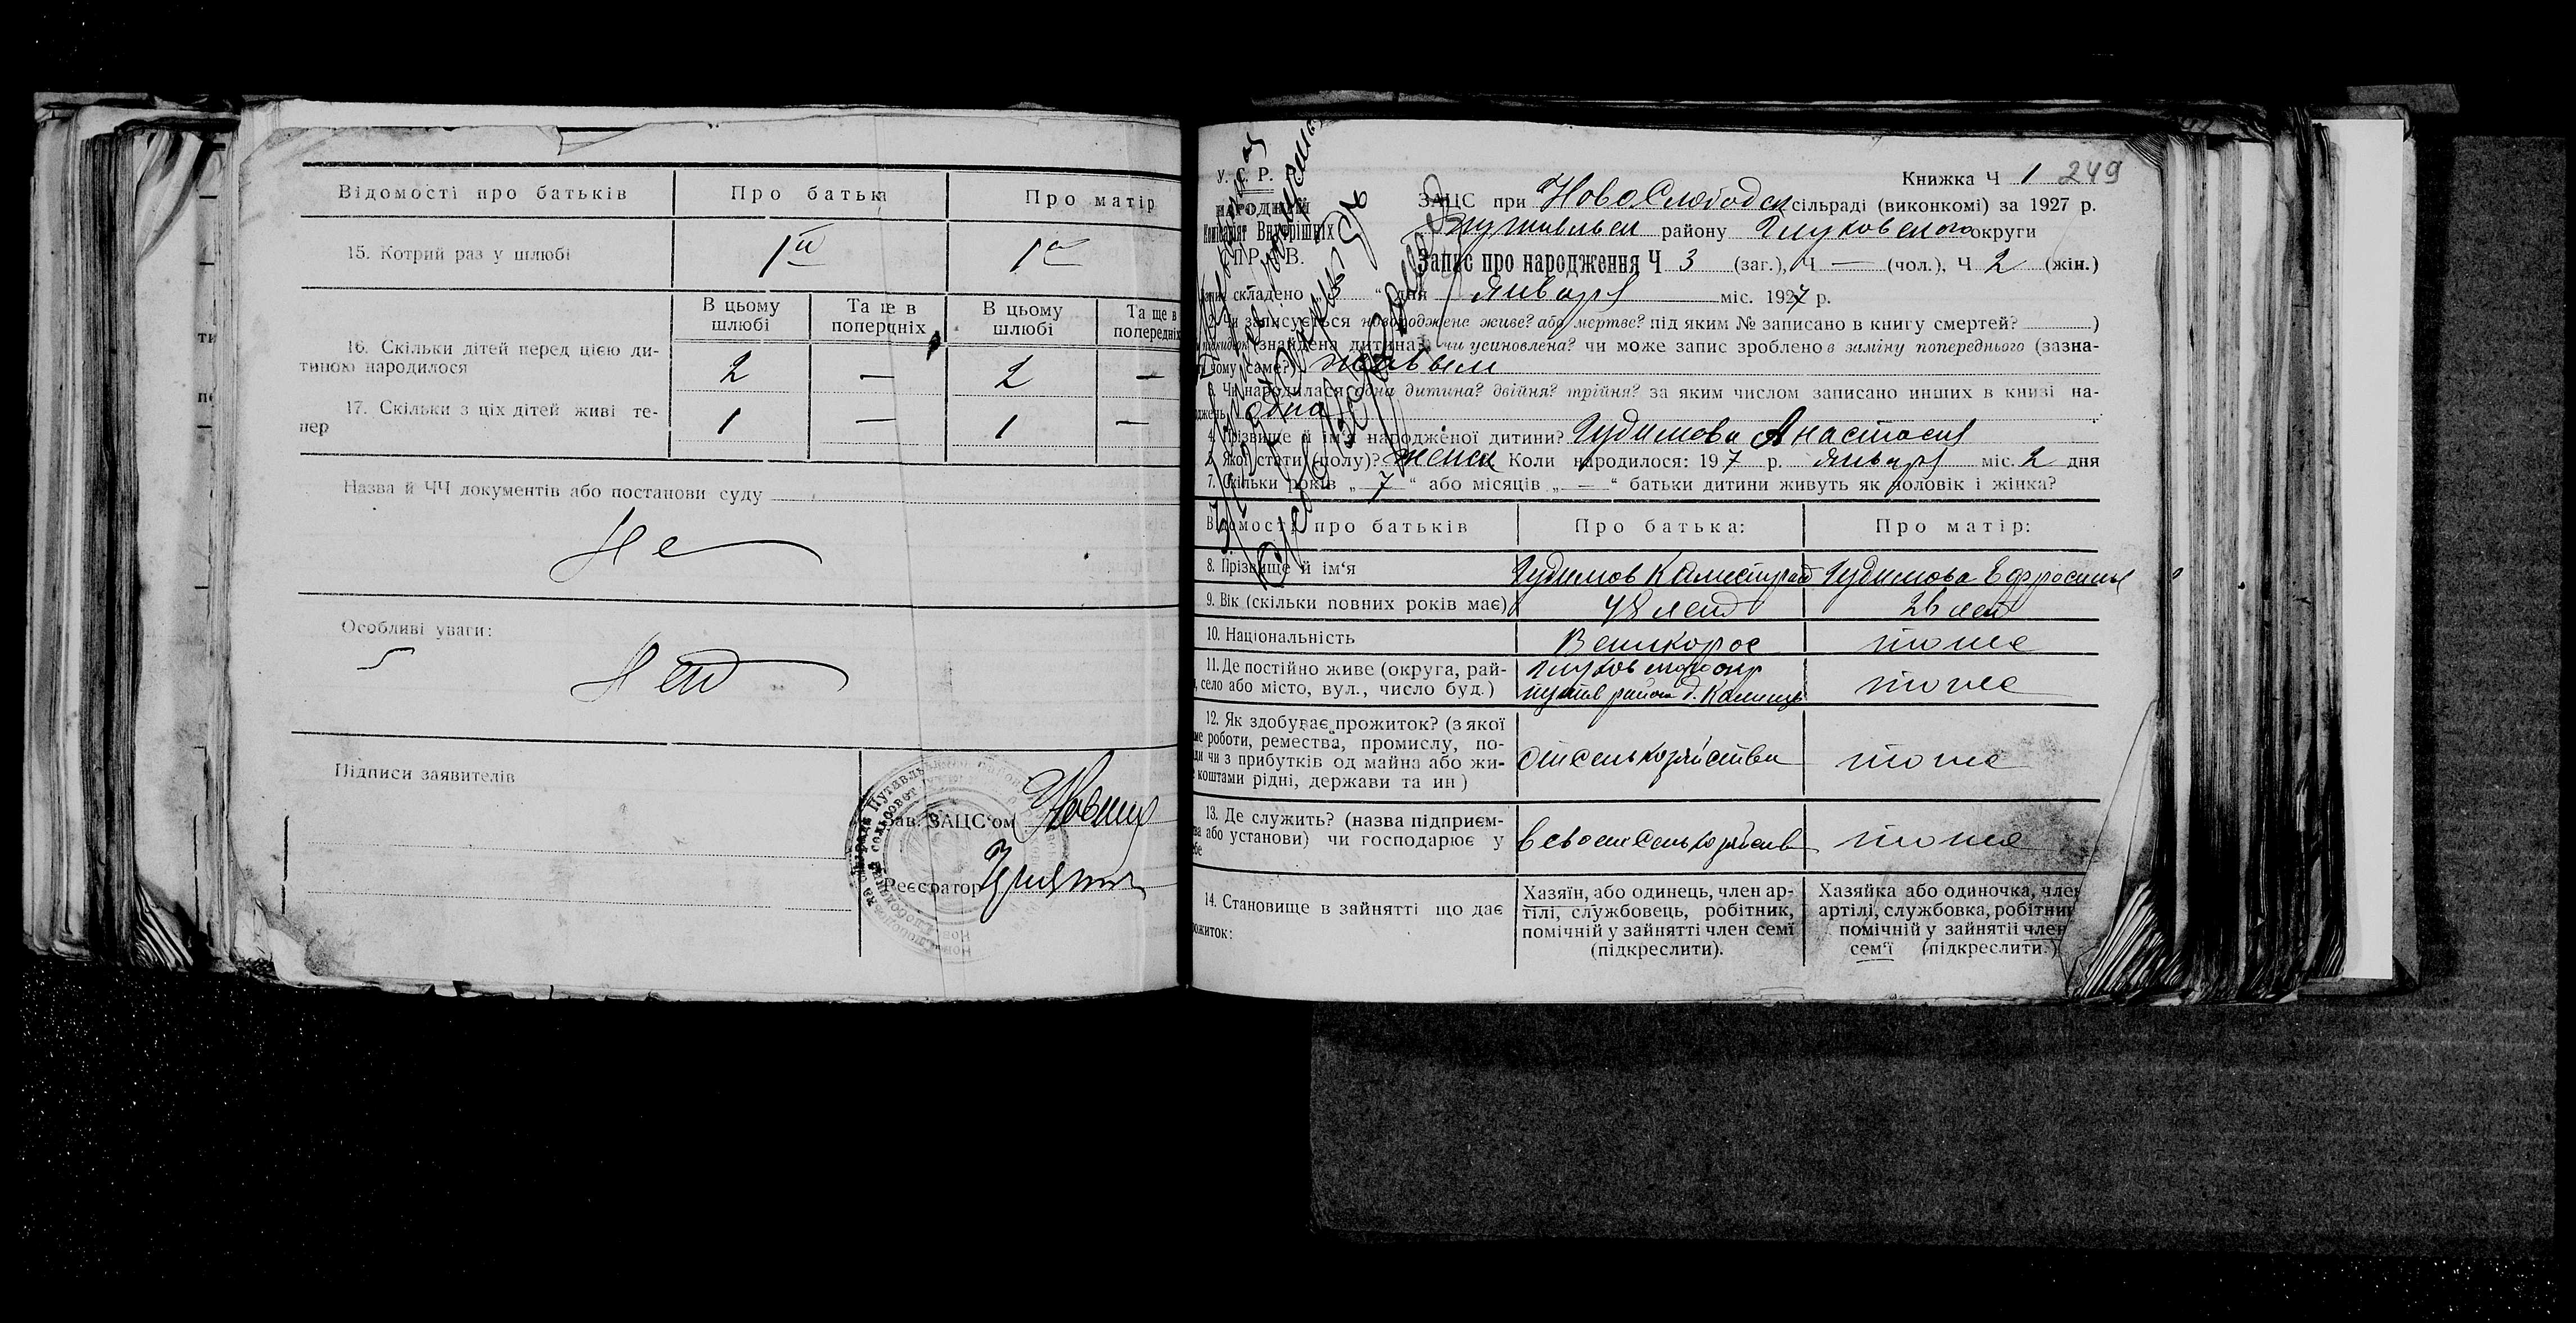 Відомості про батьків
Про батька
Про матір
15. Котрий раз у шлюбі
1й
1й
В цьому шлюбі
Та ще в поперцніх
В цьому шлюбі
Та ще в попередніх
16. Скільки дітей перед цією ди-
тиною народилося
2 — 2 —
17. Скільки з ціх дітей живі те-
пер
1 — 1 —
Назва й ЧЧ документів або постанови суду
Не
Особливі уваги:
Нет
Підписи заявителів
Зав. ЗАЦС'ом
Реєєратор
У. С. Р. Р.
НАРОДНИЙ
Комісаріят Внутрішніх
СПРАВ.
Книжка Ч 1 249
ЗАЦС при НовоСлободск сільраді (виконкомі) за 1927 р.
Путивльск району Глуховского округи
Запис про народження Ч 3 (заг.), Ч — (чол.), Ч 2 (жін.)
складено „ “ дня Января міс. 1927 р.
2. Чи записується новороджене живе? або мертве? під яким № записано в книгу смертей? )
(знайдена дитина? чи усиновлена? чи може запис зроблено в заміну попереднього (зазна-
чому саме?)
3. Чи народилася одна дитина? двійня? трійня? за яким числом записано инших в книзі на-
одна
4. Прізвище й ім'я народженої дитини? Гудимова Анастасия
Якої стати (полу)? женск Коли народилося: 197 р. января міс. 2 дня
7. Скільки років „ 7 “ або місяців „ — “ батьки дитини живуть як чоловік і жінка?
Відомості про батьків
Про батька:
Про матір:
8. Прізвище й ім'я
Гудимов Калистрат
Гудимова Ефросинья
9. Вік (скільки повних років має)
48 лет
26 лет
10. Національність
Великорос
тоже
11. Де постійно живе (округа, рай-
село або місто, вул., число буд.)
Глуховского окр
путив район д.
тоже
12. Як здобуває прожиток? (з якої
роботи, ремества, промислу, по-
чи з прибутків од майна або жи-
коштами рідні, держави та ин)
от сельхозяйства
тоже
13. Де служить? (назва підприєм-
або установи) чи господарює у
в своем сельхозяйств
тоже
14. Становище в зайнятті що дає
Хазяїн, або одинець, член ар-
тілі, службовець, робітник,
помічній у зайнятті член семї
(підкреслити).
Хазяйка або одиночка, член
артілі, службовка, робітниц
помічній у зайнятії член
сем'ї (підкреслити.)